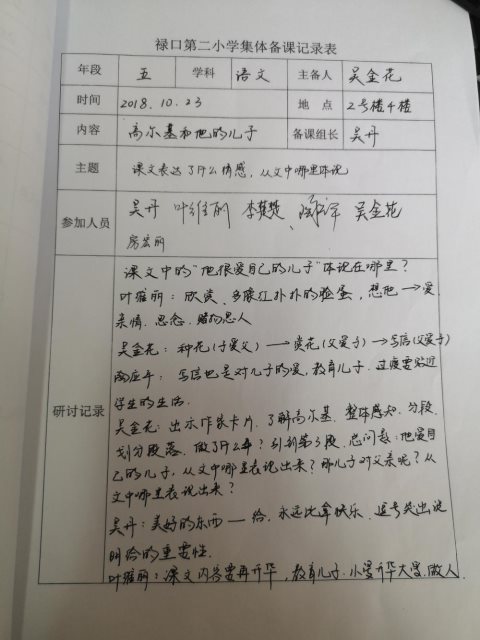 禄口第二小学集体备课记录表
年段 五 学科 语文 主备人 吴金花
时间 2018.10.23 地点 2号楼4楼
内容 高尔基和他的儿子 备课组长 吴丹
主题 课文表达了什么情感,从文中哪里体现
参加人员 吴丹 叶维丽 李楚楚、 吴金花
房宏丽
研讨记录
课文中的"他很爱自己的儿子"体现在哪里?
叶维丽:欣赏、多像红扑扑的脸蛋,想把→爱
亲情.思念.睹物思人
吴金花:种花(子爱父)→赏花(父爱子)→写信(父爱子)
写信也是对儿子的爱,教育儿子.过渡要贴近
学生的生活.
吴金花:出示作家卡片.了解高尔基.整体感知.分段.
划分段落.做了什么事?到第3段.总问数:他爱自
己的儿子,从文中哪里表现出来?那儿子对父亲呢?从
文中哪里表现出来?
吴丹:美好的东西—给.永远比拿快乐.逗号突出说
明给的重要性.
叶维丽:课文内容要再升华,教育儿子.小爱升华大爱.做人.